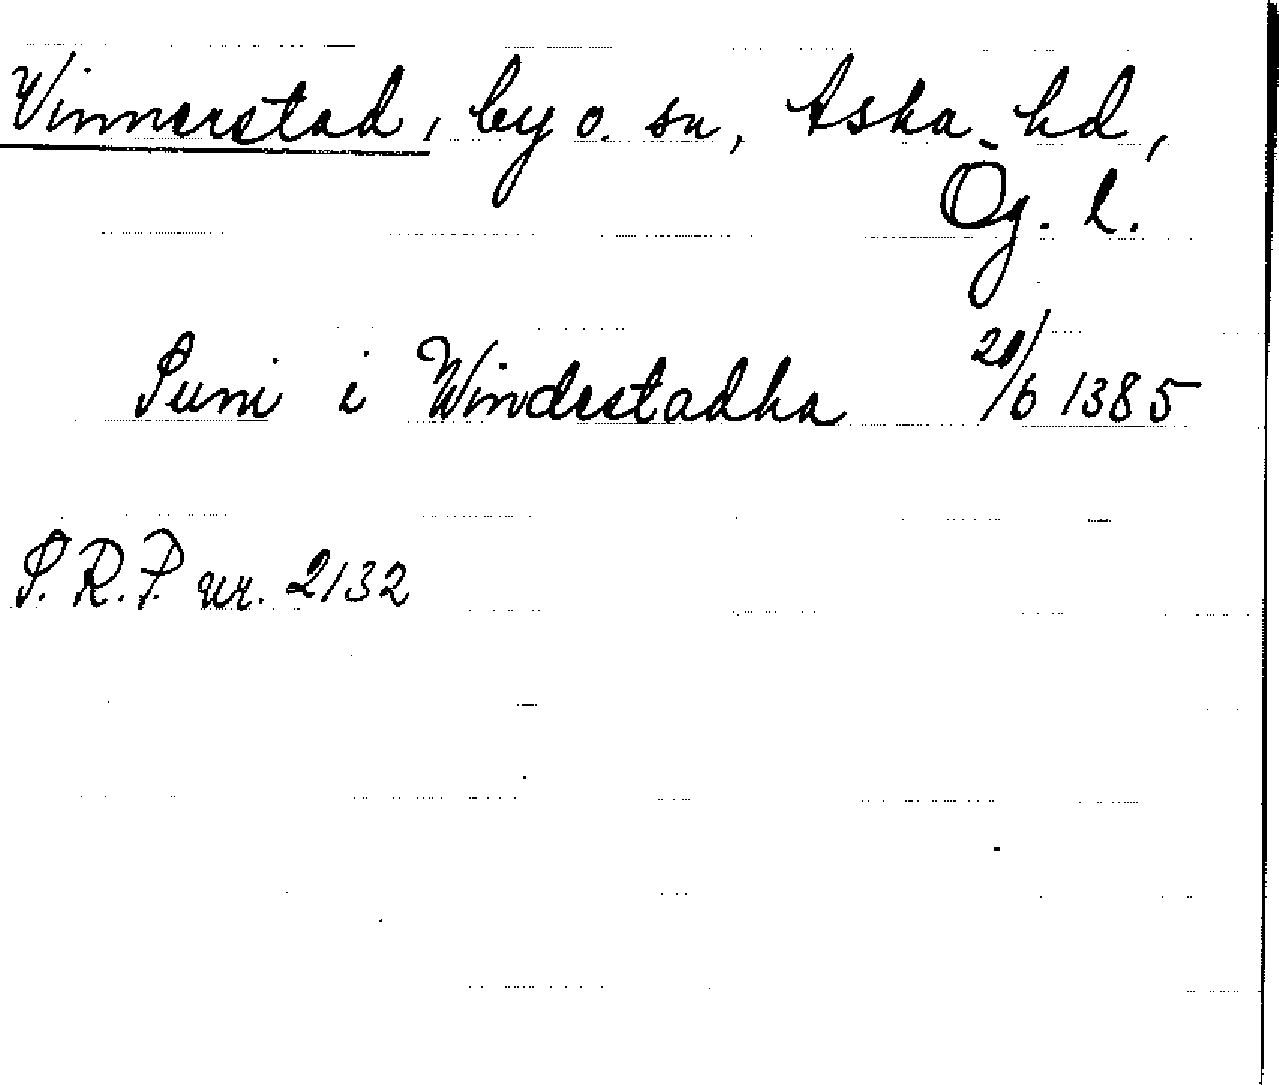 Vinnerstad, by o. sn, Aska hd,
Ög. L.
Suni i Windestadha 20/6 1385
S.R.P. nr. 2132